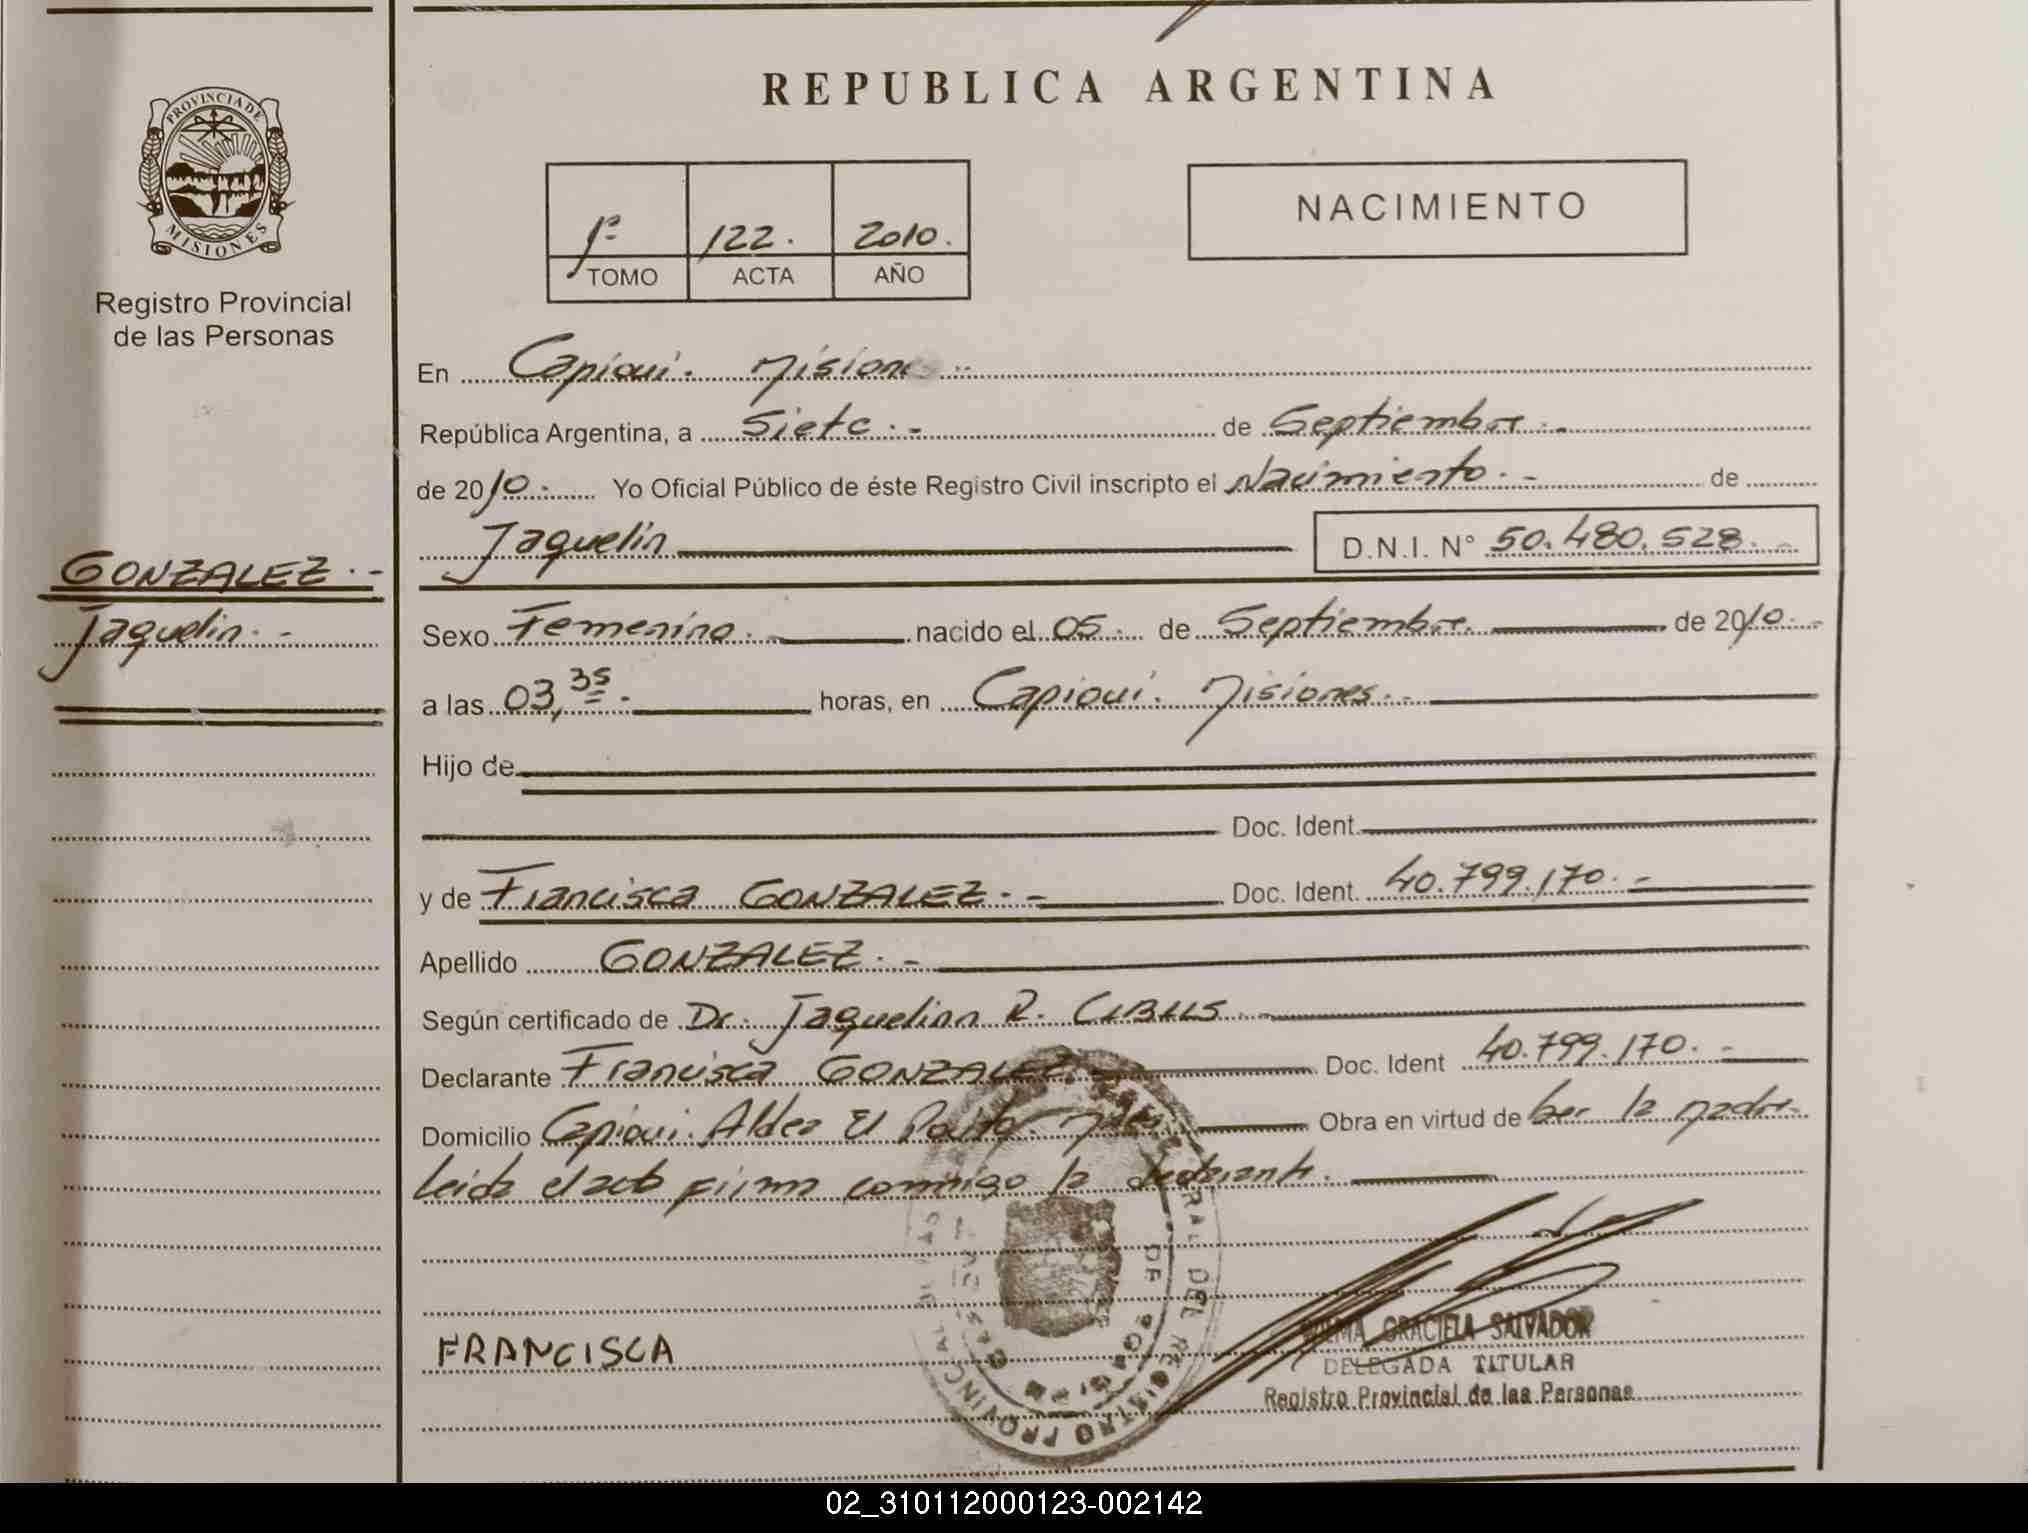 REPUBLICA ARGENTINA
PROVINCIA DE
MISIONES
Registro Provincial
de las Personas
1º
122.
2010.
TOMO
ACTA
AÑO
NACIMIENTO
En Capiovi. Misiones.-
República Argentina, a Siete.- de Septiembre.-
de 2010.- Yo Oficial Público de éste Registro Civil inscripto el Nacimiento.- de
Jaquelin D.N.I. N° 50.480.528.-
GONZALEZ.-
Jaquelin.-
Sexo Femenino. nacido el 05. de Septiembre. de 2010.-
a las 03,35. horas, en Capiovi. Misiones.-
Hijo de
Doc. Ident.
y de Francisca GONZALEZ.- Doc. Ident. 40.799.170.-
Apellido GONZALEZ.-
Según certificado de Dr. Jaquelinn R.
Declarante Francisca GONZALEZ.- Doc. Ident 40.799.170.-
Domicilio Capiovi. Aldea El Obra en virtud de Ser la madre-
leida el acta firma conmigo la declarante.
FRANCISCA
GRACIELA SALVADOR
DELEGADA TITULAR
Registro Provincial de las Personas
02_310112000123-002142